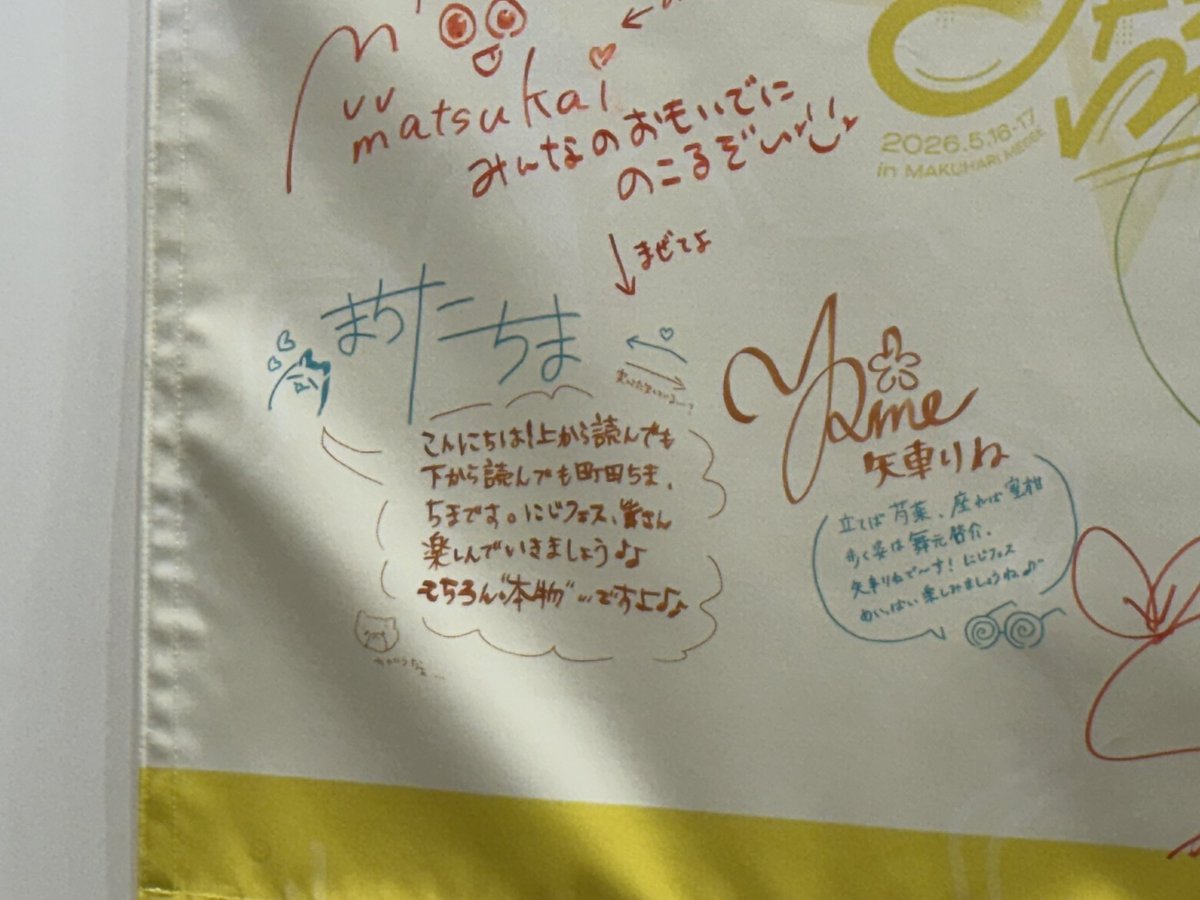 matsukai
みんなのおもいでに
のこるぞい
2026.5.16-17
in MAKUHARI MESSE
まぜてよ
まちたこちま
こんにちは!上から読んでも
下から読んでも町田ちま、
ちまです。にじフェス、皆さん
楽しんでいきましょう♪♪
もちろん"本物"…ですよ♪♪
Rine
矢車りね
立てば芍薬、座れば
歩く姿は舞元啓介、
矢車りねで〜す!にじフェス
めいっぱい楽しみましょうね♪